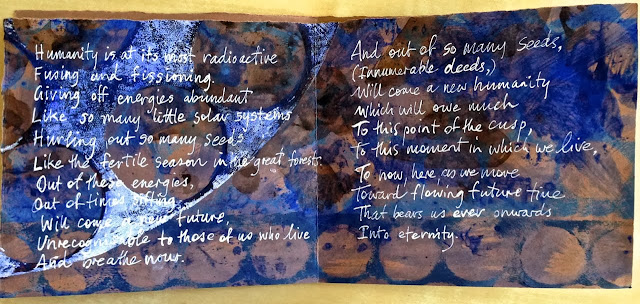 Humanity is at its most radioactive
Fusing and fissioning.
Giving off energies abundant
Like so many little solar systems
Hurling out so many seeds
Like the fertile season in the great forest.
Out of these energies,
Out of times sifting
Will come a new future,
Unrecognisable to those of us who live
And breathe now.
And out of so many seeds,
(Innumerable deeds,)
Will come a new humanity
Which will owe much
To this point of the cusp,
To this moment in which we live,
To now, here, as we move
Toward flowing future time
That bears us ever onwards
Into eternity.